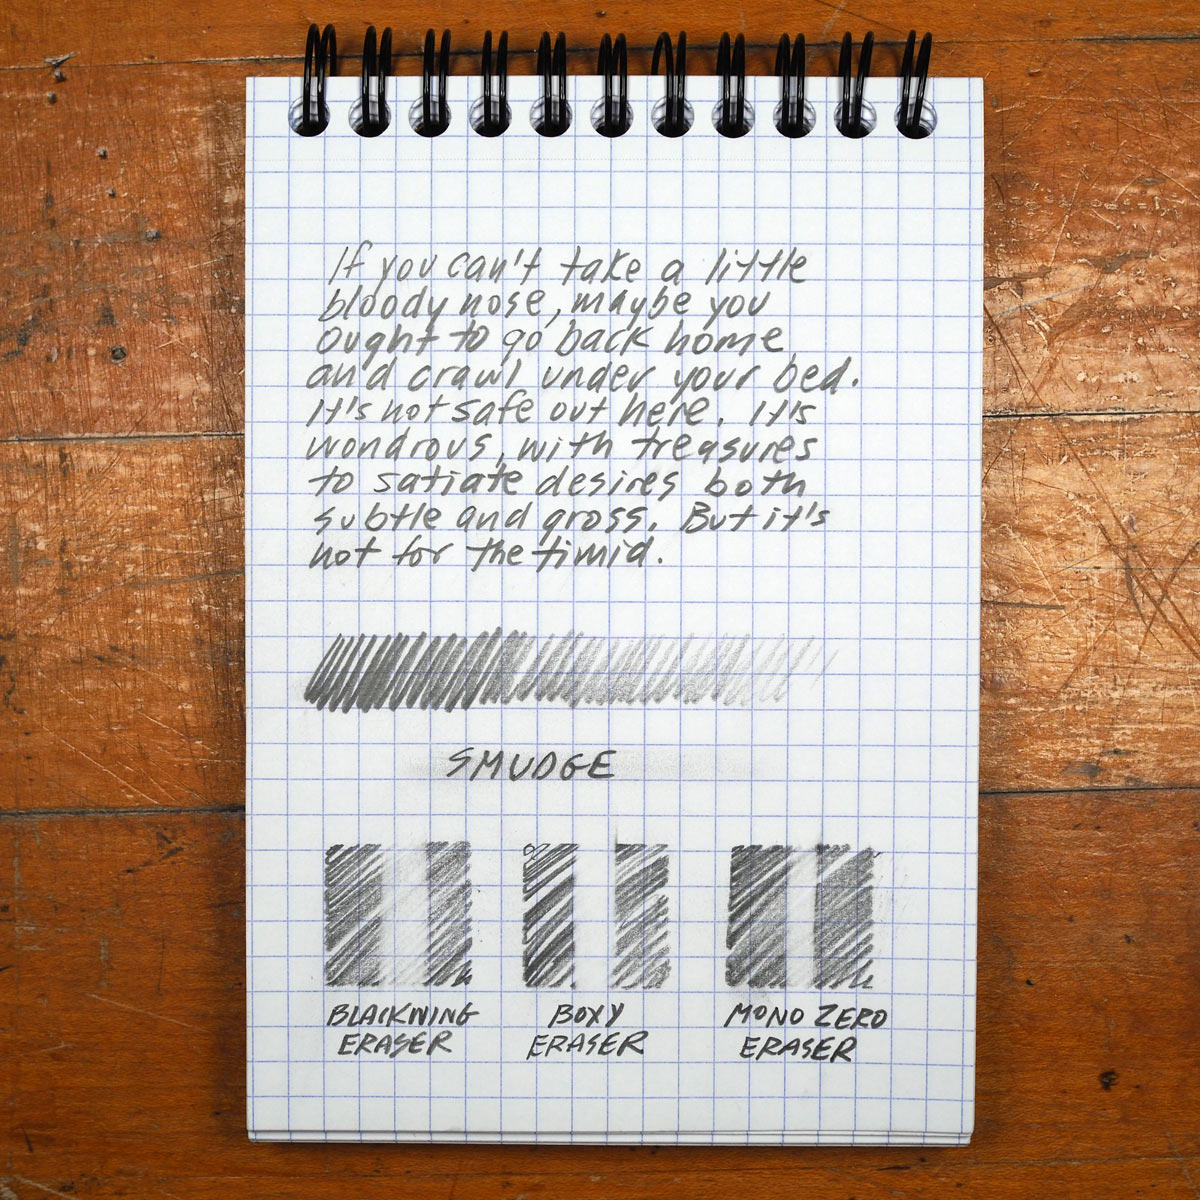 If you can't take a little
bloody nose, maybe you
ought to go back home
and crawl under your bed.
It's not safe out here. It's
wondrous, with treasures
to satiate desires both
subtle and gross. But it's
not for the timid.
SMUDGE
BLACKWING
ERASER
BOXY
ERASER
MONO ZERO
ERASER